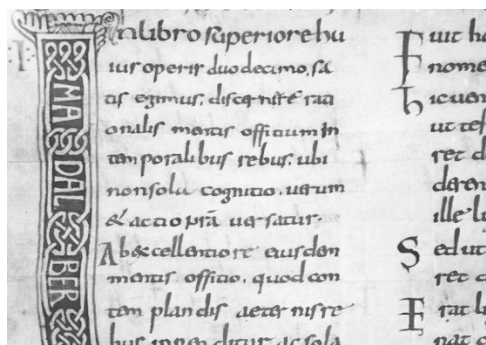 I
MA
DAL
BER
In libro superiore hu
ius operis duodecimo, sa
tis egimus, discernere rati
onalis mentis officium in
temporalibus rebus, ubi
non solū cognitio, uerum
& actio nrā uersatur.
Ab excellentiore eiusdem
mentis officio, quod con
templandis aeternis re
bus inpenditur, ac sola
Fuit ho
nome
hic uen
ut tes
ret d
deren
ille lu
Sed ut
ret c
Erat lu